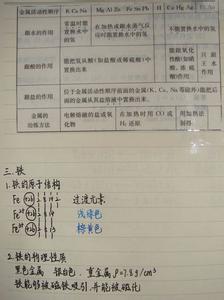 金属活动性顺序 K Ca Na Mg Al Zn Fe Sn Pb H Cu Hg Ag Pt Au
跟水的作用 常温时能置换水中的氢 在加热或跟水蒸气反应时能置换水中的氢 不能置换水中的氢
跟酸的作用 能把氢从酸(如盐酸或稀硫酸)中置换出来 能跟氧化性酸(如硝酸、浓硫酸)反应 只跟王水反应
跟盐的作用 位于金属活动性顺序前面的金属(K、Ca、Na等除外)能把后面的金属从其盐溶液中置换出来
金属的冶炼方法 电解熔融的盐或氧化物 在加热时用CO或H₂还原 用加热法制得
三.铁
1.铁的原子结构
Fe +26 2 8 14 2 过渡元素
Fe²⁺ +26 2 8 14 浅绿色
Fe³⁺ +26 2 8 13 棕黄色
2.铁的物理性质
黑色金属 银白色 重金属 ρ=7.8g/cm³
铁能够被磁铁吸引,并能被磁化